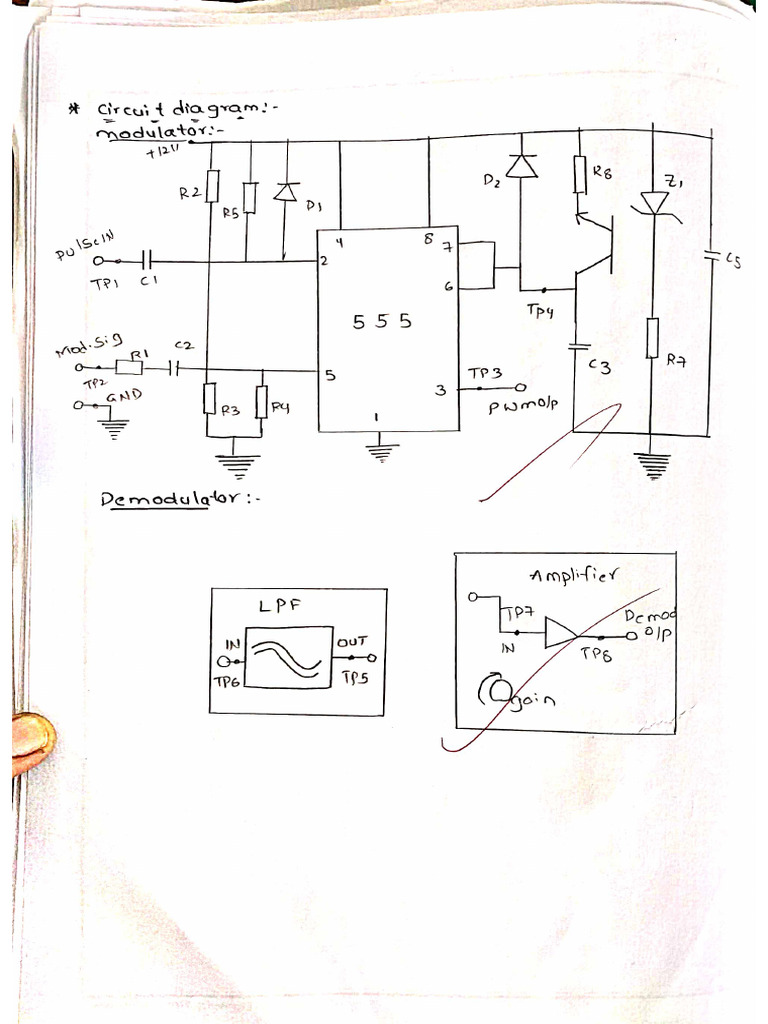 * Circuit diagram:-
modulator:-
+12V
R2
R5
D1
D2
R8
Z1
C5
Pulse IN
TP1
C1
2
4
8
7
6
555
TP4
Mod.Sig
R1
C2
TP2
GND
5
R3
R4
1
3
TP3
PWM O/P
C3
R7
Demodulator:-
LPF
IN
OUT
TP6
TP5
Amplifier
TP7
IN
Demod
O/P
TP8
gain